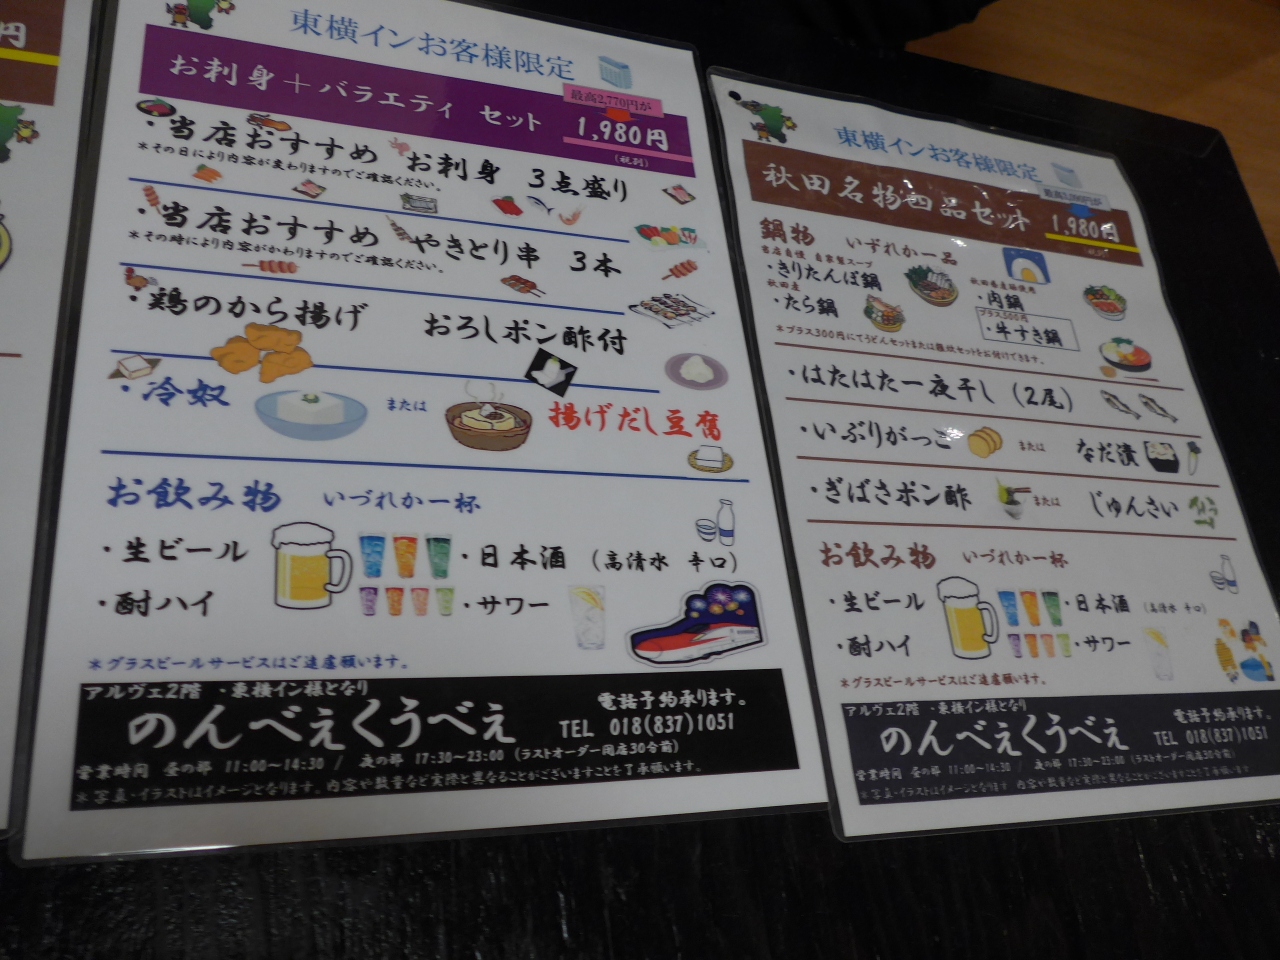 円
東横インお客様限定
お刺身+バラエティ セット
最高2,770円が
1,980円
(税別)
・当店おすすめ お刺身 3点盛り
*その日により内容が変わりますのでご確認ください。
・当店おすすめ やきとり串 3本
*その時により内容がかわりますのでご確認ください。
・鶏のから揚げ おろしポン酢付
・冷奴 または 揚げだし豆腐
お飲み物 いづれか一杯
・生ビール ・日本酒 (高清水 辛口)
・酎ハイ ・サワー
*グラスビールサービスはご遠慮願います。
アルヴェ2階 ・東横イン様となり
のんべぇくうべぇ
電話予約承ります。
TEL 018(837)1051
営業時間 昼の部 11:00~14:30 / 夜の部 17:30~23:00 (ラストオーダー閉店30分前)
*写真・イラストはイメージとなります。内容や数量など実際と異なることがございますことを了承願います。
東横インお客様限定
秋田名物四品セット
1,980円
鍋物 いづれか一品
当店自慢 自家製スープ
・きりたんぽ鍋
秋田産
・たら鍋
・肉鍋
プラス300円
・牛すき鍋
*プラス300円にてうどんセットまたは雑炊セットをお付けできます。
・はたはた一夜干し (2尾)
・いぶりがっこ または なだ漬
・ぎばさポン酢 または じゅんさい
お飲み物 いづれか一杯
・生ビール ・日本酒 (高清水 辛口)
・酎ハイ ・サワー
*グラスビールサービスはご遠慮願います。
アルヴェ2階 ・東横イン様となり
のんべぇくうべぇ
電話予約承ります。
TEL 018(837)1051
営業時間 昼の部 11:00~14:30 / 夜の部 17:30~23:00 (ラストオーダー閉店30分前)
*写真・イラストはイメージとなります 内容や数量など実際と異なることがございますことを了承願います